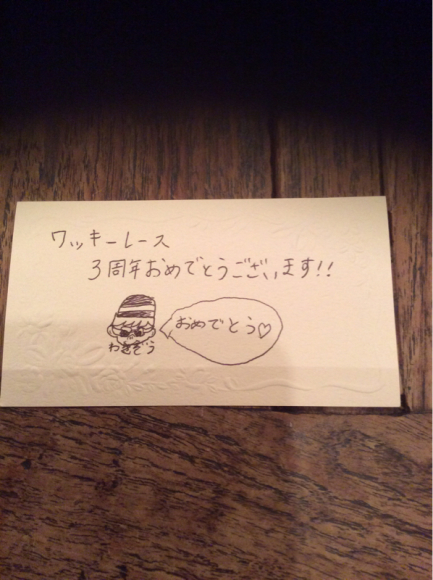 ワッキーレース
3周年おめでとうございます!!
おめでとう♡
わきぞう